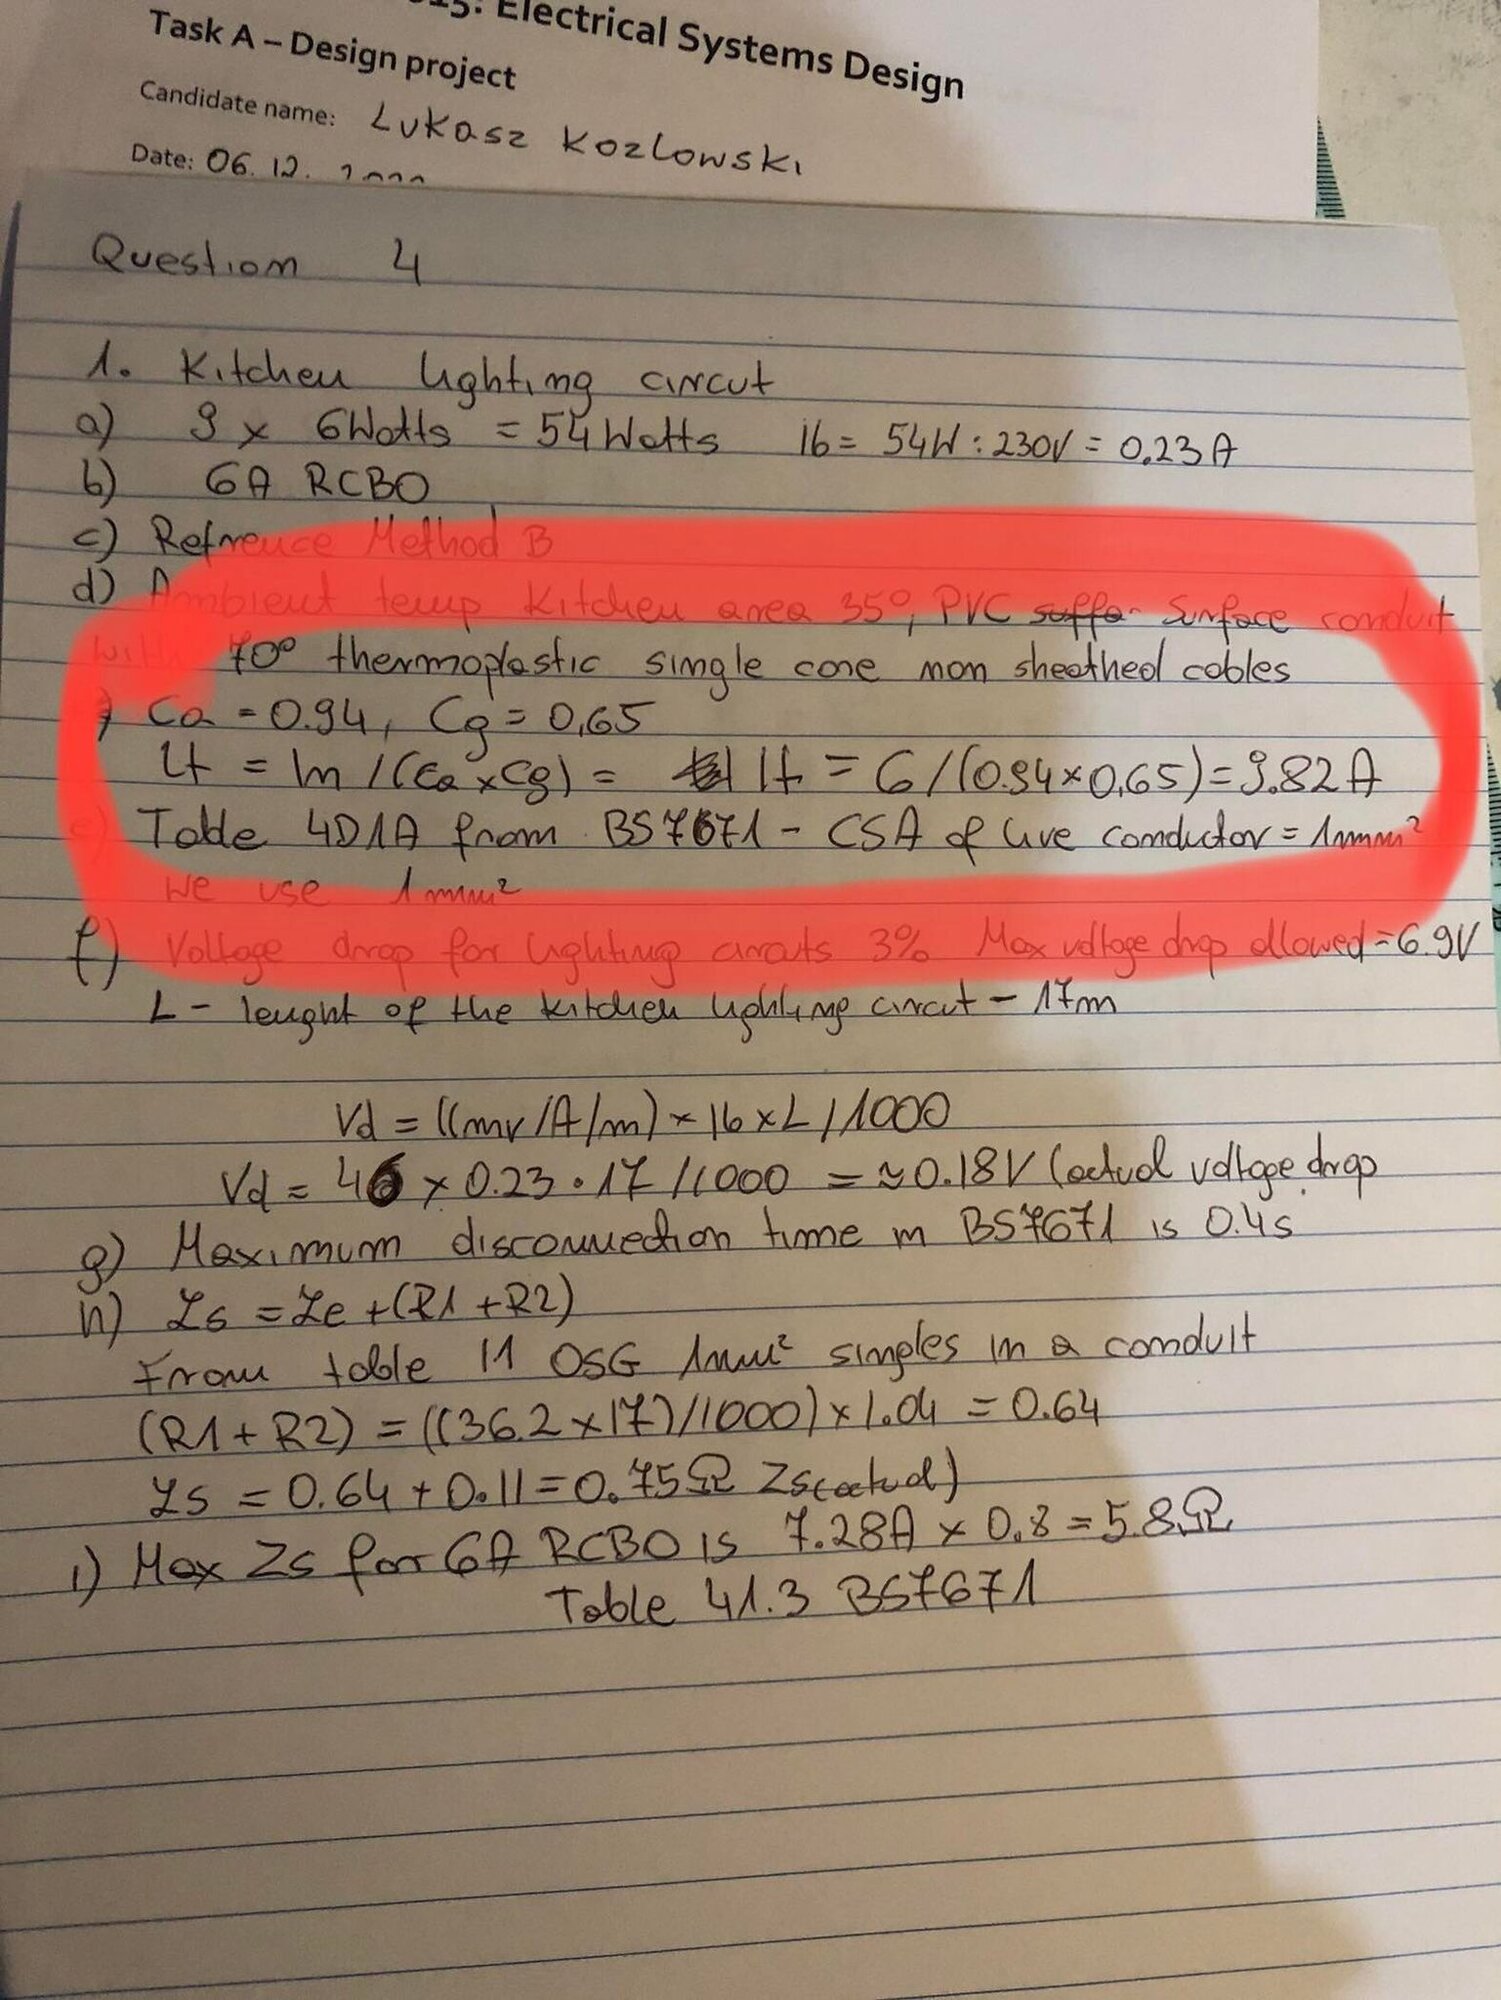 15: Electrical Systems Design
Task A – Design project
Candidate name: Lukasz Kozlowski
Date: 06. 12.
Question 4
1. Kitchen lighting circut
a) 9 x 6Watts = 54Watts Ib = 54W : 230V = 0.23A
b) 6A RCBO
c) Refrence Method B
d) Ambient temp Kitchen area 35°, PVC Surface conduit
with 70° thermoplastic single core non sheathed cables
Ca = 0.94, Cg = 0,65
It = In / (Ca x Cg) = It = 6 / (0.94 x 0,65) = 9.82A
e) Table 4D1A from BS7671 - CSA of live conductor = 1mm²
we use 1mm²
f) Voltage drop for lighting circuts 3% Max voltage drop allowed = 6.9V
L - lenght of the kitchen lighting circut - 17m
Vd = ((mv/A/m) x Ib x L / 1000
Vd = 46 x 0.23 • 17 / 1000 = ≈ 0.18V (actual voltage drop
g) Maximum disconnection time in BS7671 is 0.4s
h) Zs = Ze + (R1 + R2)
From table I1 OSG 1mm² singles in a conduit
(R1 + R2) = ((36.2 x 17) / 1000) x 1.04 = 0.64
Zs = 0.64 + 0.11 = 0.75Ω Zs (actual)
i) Max Zs for 6A RCBO is 7.28A x 0.8 = 5.8Ω
Table 41.3 BS7671